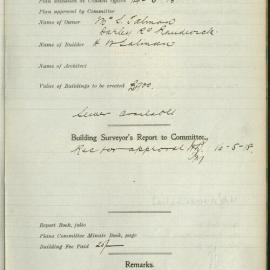 Plan approved by Committee
Name of Owner Mr S. Salman
Darley Rd Randwick
Name of Builder H W Salman
Name of Architect
Value of Buildings to be erected £700
Sewer available
Building Surveyor's Report to Committee.
Rec for approval 10-5-18
Report Book, folio
Plans Committee Minute Book, page
Building Fee Paid 20/-
Remarks.